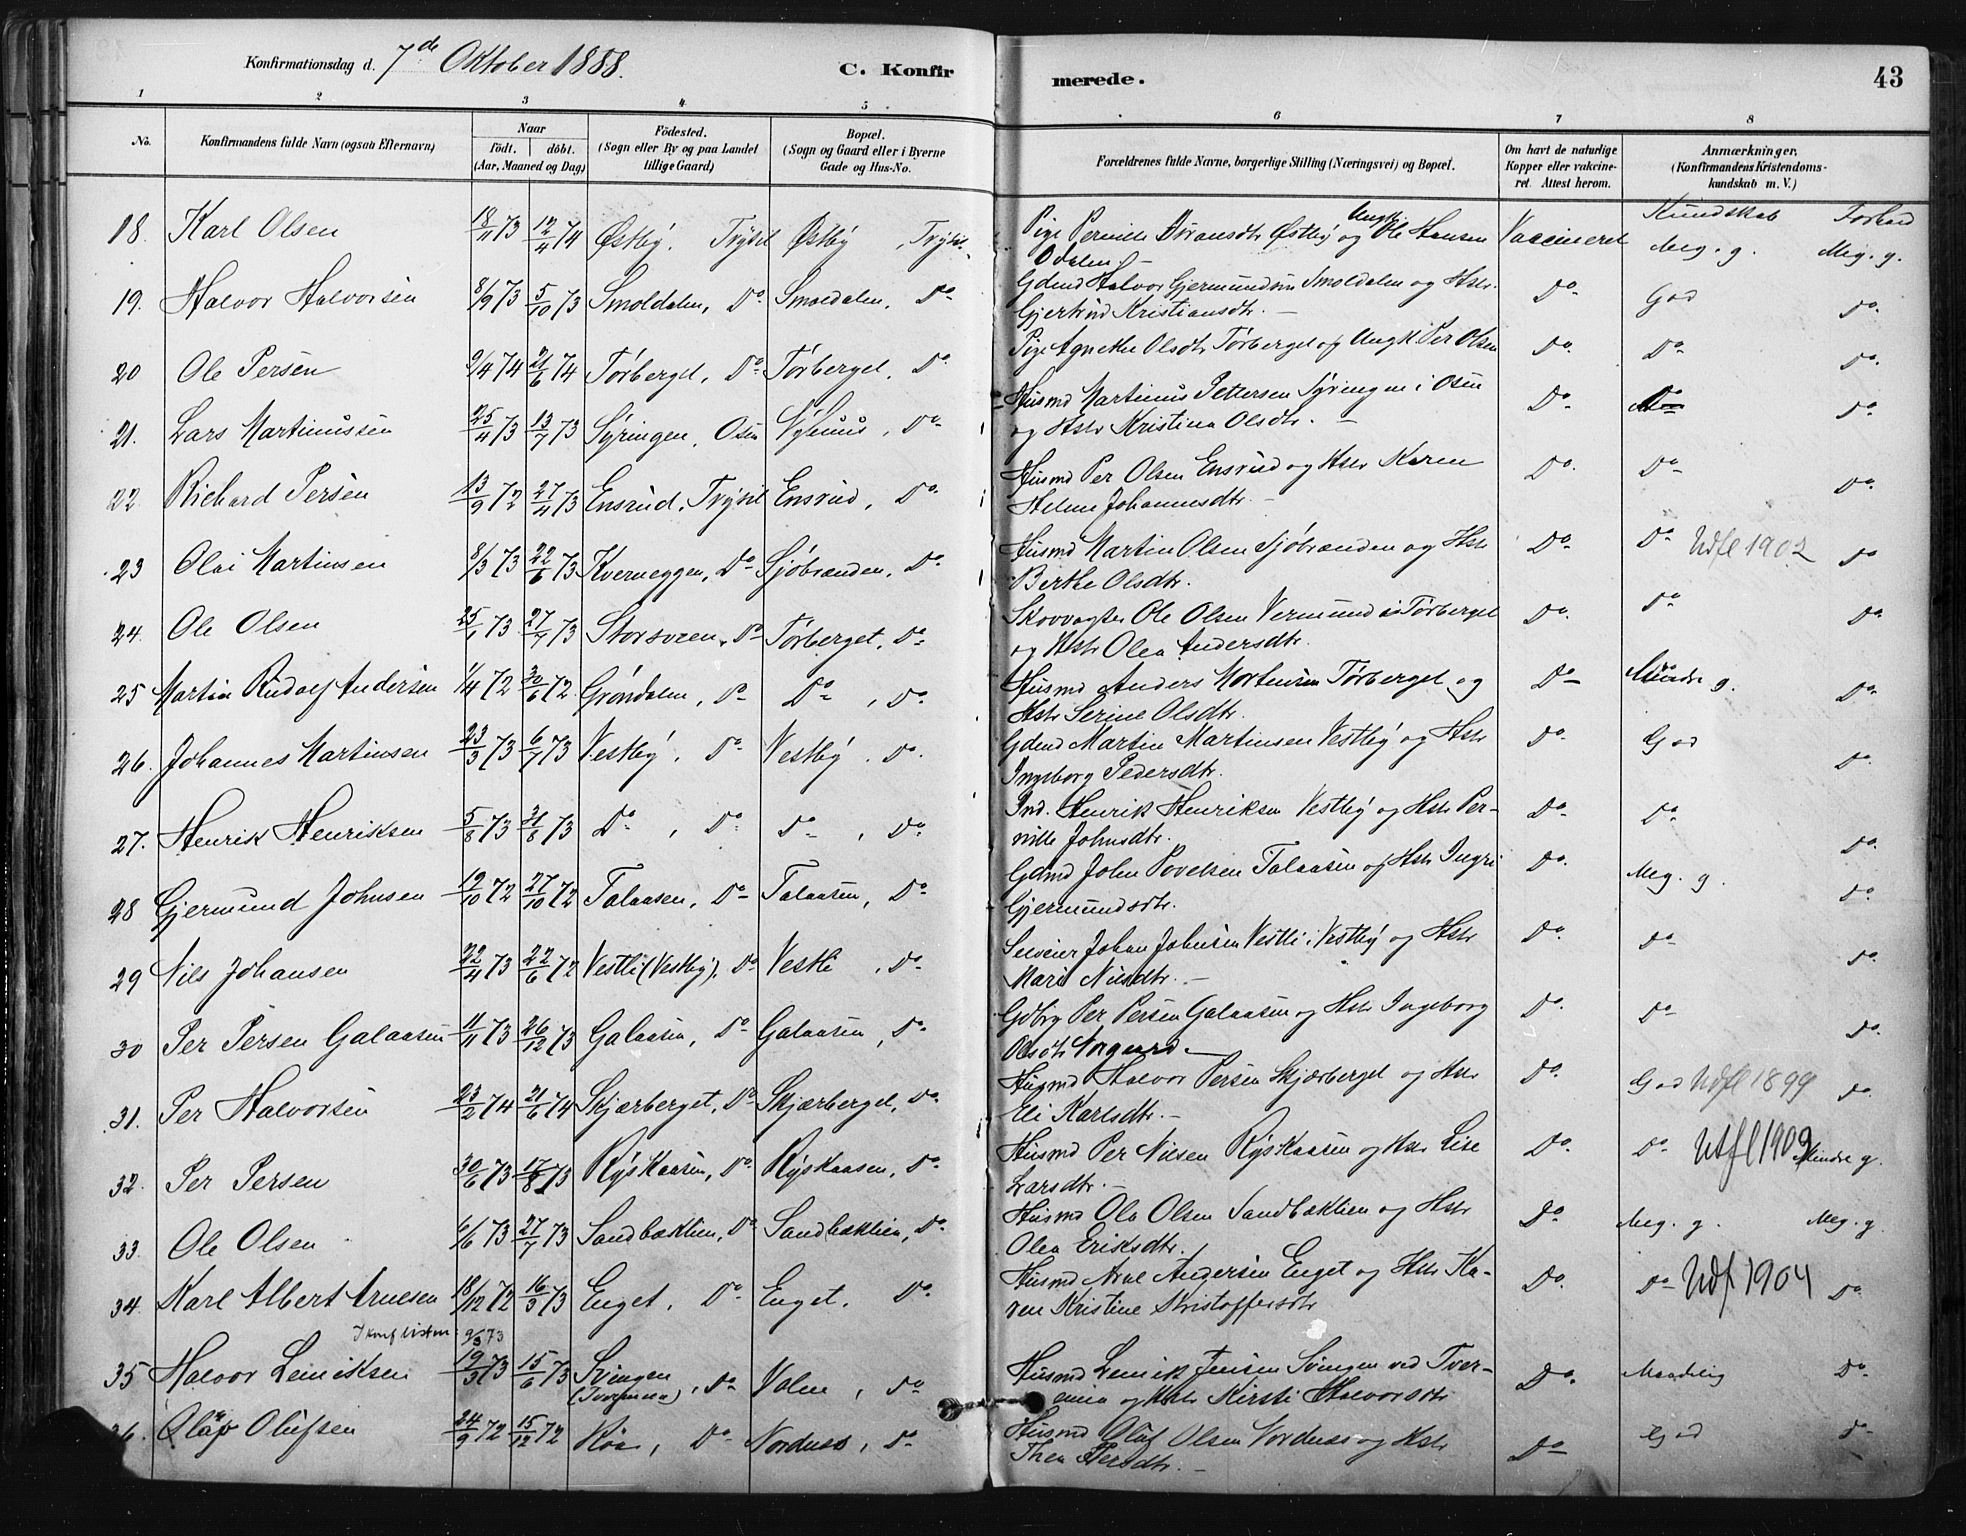 Konfirmationsdag d. 7de Oktober 1888.
C. Konfir
merede.
43
1 2 3 4 5 6 7 8
No.
Konfirmandens fulde Navn (ogsaa Efternavn)
Naar
födt. döbt.
(Aar, Maaned og Dag)
Födested.
(Sogn eller By og paa Landet tillige Gaard)
Bopæl.
(Sogn og Gaard eller i Byerne Gade og Hus-No.
Forældrenes fulde Navne, borgerlige Stilling (Næringsvei) og Bopæl.
Om havt de naturlige Kopper eller vaccineret. Attest herom.
Anmærkninger,
(Konfirmandens Kristendomskundskab m. V.)
Kundskab Forhold
18. Karl Olsen 18/11 73 12/4 74 Østby, Trysil Østby, Trysil. Pige Pernille Østby og Ungk. Ole Hansen Vaccineret Meg. g. Meg. g.
Odalen.
19. Halvor Halvorsen 8/9 73 5/10 73 Smoldalen, Do Smoldalen, Do Gdmd Halvor Gjermundsen Smoldalen og Hstr. Do. God Do.
Gjertrud Kristiansdtr.
20 Ole Persen 9/4 74 21/6 74 Törberget, Do Törberget, Do Pige Agnethe Olsdtr Törberget og Ungk. Per Olsen Do. Do Do.
21. Lars Martinussen 25/4 73 13/7 73 Syringen, Osen Nyhuus, Do Husmd Martinus Pettersen Syringen i Osen Do. Do Do.
og Hstr Kristina Olsdtr.
22 Richard Persen 13/9 72 27/4 73 Ensrud, Trysil Ensrud, Do. Husmd Per Olsen Ensrud og Hstr Karen Do. Do Do.
Helene Johannesdtr.
23 Olai Martinsen 8/3 73 22/6 73 Kverneggen, Do Sjöbrænden, Do Husmd Martin Olsen Sjöbrænden og Hstr Do. Do Udfl 1902 Do
Berthe Olsdtr.
24. Ole Olsen 27/7 73 Do Törberget, Do. Skovvogter Ole Olsen Vermund i Törberget Do. Do Do.
og Hstr Olea Andersdtr.
25 Martin Rudolf Andersen 1/4 72 30/6 72 Gröndalen, Do Do, Do. Husmd Anders Mortensen Törberget og Do Mindre g. Do.
Hstr Serine Olsdtr.
26. Johannes Martinsen 23/3 73 6/7 73 Vestby, Do Vestby, Do. Gdmd Martin Martinsen Vestby og Hstr Do. God Do.
Ingeborg Pedersdtr.
27. Henrik Henriksen 5/8 73 31/8 73 Do, Do. Do, Do. Ind. Henrik Henriksen Vestby og Hstr Per- Do. Do. Do.
nille Johnsdtr.
28 Gjermund Johnsen 19/10 72 27/10 72 Talaasen, Do Talaasen, Do. Gdmd John Povelsen Talaasen og Hstr Ingri Do. Meg. g. Do.
Gjermundsdtr.
29 Nils Johansen 22/4 73 22/6 72 Vestli (Vestby), Do Vestli, Do. Selveier Johan Johnsen Vestli i Vestby og Hstr Do. Do Do.
Mari Nilsdtr.
30 Per Persen Galaasen 11/11 73 26/12 73 Galaasen, Do Galaasen, Do. Gdbrg Per Persen Galaasen og Hstr Ingeborg Do. Do Do.
Olsdtr Norgaard.
31. Per Halvorsen 23/2 74 21/6 74 Skjærberget, Do Skjærberget, Do. Husmd Halvor Persen Skjærberget og Hstr Do. God Udfl 1899 Do.
Eli Karlsdtr.
32. Per Persen 30/6 73 17/8 73 Ryskaasen, Do. Ryskaasen, Do. Husmd Per Nilsen Ryskaasen og Hstr Lise Do. Do. Utfl 1909 Mindre g.
Larsdtr.
33. Ole Olsen 6/6 73 27/7 73 Sandbæklien, Do Sandbæklien, Do. Husmd Ole Olsen Sandbæklien og Hstr Do. Meg. g. Meg. g.
Olea Eriksdtr.
34. Karl Albert Arnesen 18/12 72 16/3 73 Enget, Do. Enget, Do. Husmd Arne Andersen Enget og Hstr Ka- Do. Do Udf 1904 Do.
ren Kristine Kristoffersdtr
I konf listen: 9/3 73
35 Halvor Lemiksen 19/3 73 15/6 73 Svingen, Do Valen, Do Husmd Lemik Jensen Svingen ved Tver- Do. Maadelig Do.
og Hstr Kirsti Halvorsdtr
36. Olaf Olufsen 24/9 72 15/12 72 Röa, Do Norduss, Do Husmd Oluf Olsen Norduss og Hstr Do God Do
Thea Persdtr.